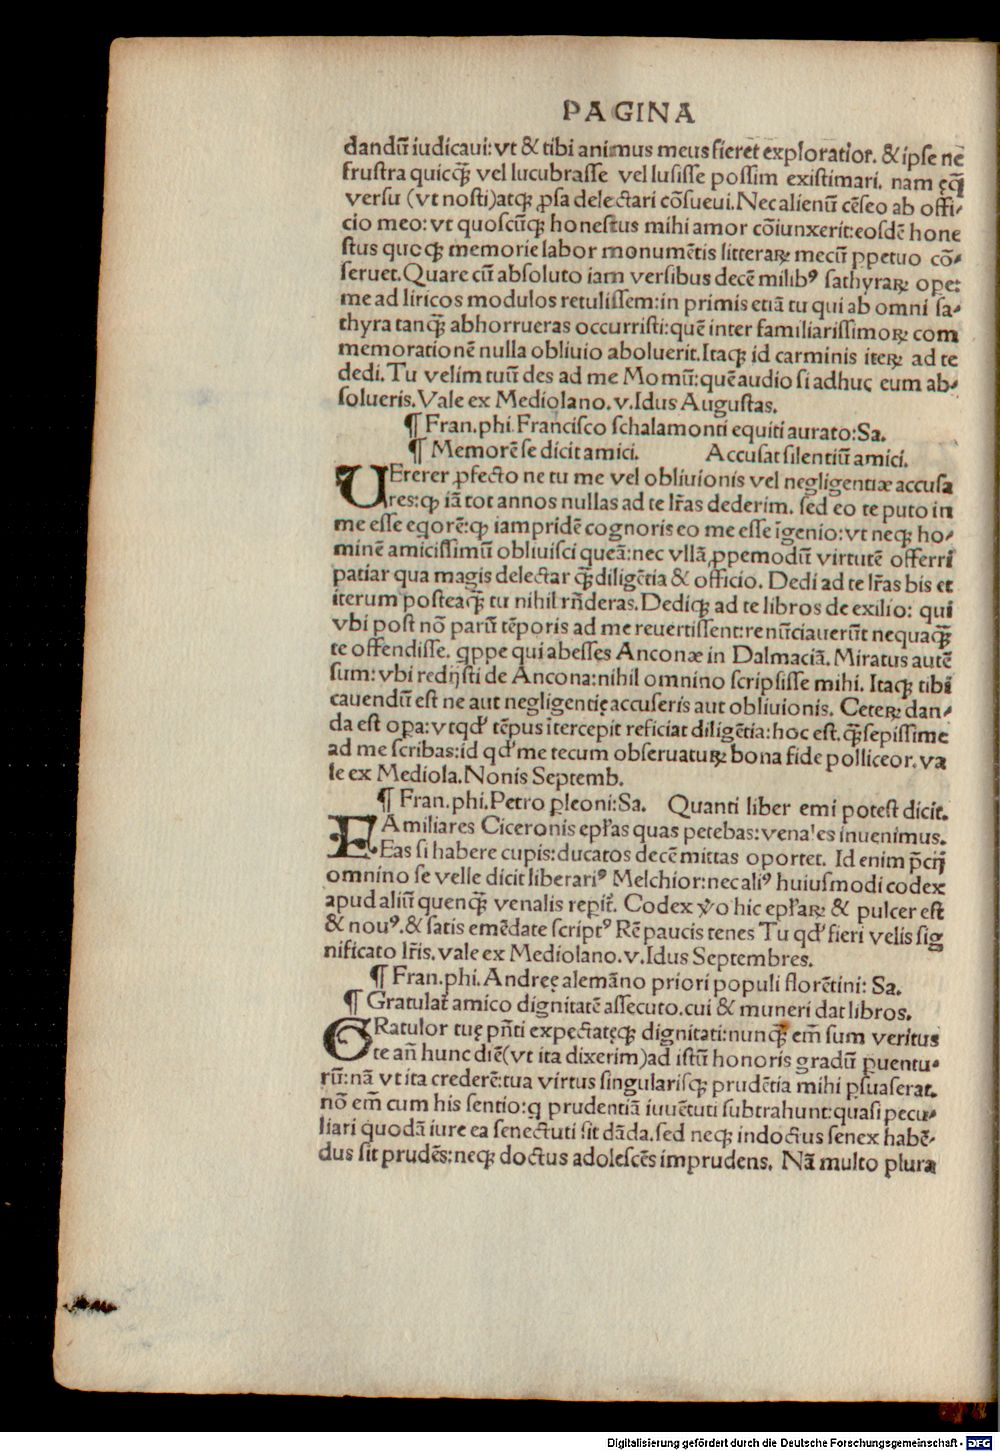 PAGINA
dandū iudicaui: vt & tibi animus meus fieret exploratior. & ipse ne
frustra quicq̄ vel lucubrasse vel lusisse possim existimari. nam ęq̄
versu (vt nosti) atq; ꝓsa delectari cōsueui. Nec alienū cēseo ab offi-
cio meo: vt quoscūq; honestus mihi amor cōiunxerit: eosdē hone
stus quoq; memorie labor monumētis litteraꝝ mecū ꝑpetuo cō-
seruet. Quare cū absoluto iam versibus decē milibꝰ sathyraꝝ ope:
me ad liricos modulos retulissem: in primis etiā tu qui ab omni sa-
thyra tanq̄ abhorrueras occurristi: quē inter familiarissimoꝝ com
memorationē nulla obliuio aboluerit. Itaq; id carminis iteꝝ ad te
dedi. Tu velim tuū des ad me Momū: quē audio si adhuc eum ab-
solueris. Vale ex Mediolano. v. Idus Augustas.
¶ Fran. phi. Francisco schalamonti equiti aurato: Sa.
¶ Memorē se dicit amici. Accusat silentiū amici.
UErerer ꝓfecto ne tu me vel obliuionis vel negligentiæ accusa
res: ꝙ iā tot annos nullas ad te lr̄as dederim. sed eo te puto in
me esse eqorē: ꝙ iampridē cognoris eo me esse īgenio: vt neq; ho-
minē amicissimū obliuisci queā: nec vllā ꝓpemodū virtutē offerri
patiar qua magis delectar q̄ diligētia & officio. Dedi ad te lr̄as bis et
iterum posteaq̄ tu nihil rn̄deras. Dediq; ad te libros de exilio: qui
vbi post nō parū tēporis ad me reuertissent: renūciauerūt nequaq̄
te offendisse. qppe qui abesses Anconæ in Dalmaciā. Miratus autē
sum: vbi redijsti de Ancona: nihil omnino scripsisse mihi. Itaq; tibi
cauendū est ne aut negligentię accuseris aut obliuionis. Ceteꝝ dan-
da est oꝑa: vt qd' tēpus ītercepit reficiat diligētia: hoc est. q̄ sepissime
ad me scribas: id qd' me tecum obseruatuꝝ bona fide polliceor. va
le ex Mediola. Nonis Septemb.
¶ Fran. phi. Petro ꝑleoni: Sa. Quanti liber emi potest dicit.
FAmiliares Ciceronis epl̄as quas petebas: venales inuenimus.
Eas si habere cupis: ducatos decē mittas oportet. Id enim p̄cij
omnino se velle dicit liberariꝰ Melchior: nec aliꝰ huiusmodi codex
apud aliū quenq̄ venalis reꝑit̄. Codex v̓o hic epl̄aꝝ & pulcer est
& nouꝰ. & satis emēdate scriptꝰ Rē paucis tenes Tu qd' fieri velis sig
nificato lr̄is. vale ex Mediolano. v. Idus Septembres.
¶ Fran. phi. Andreę alemāno priori populi florētini: Sa.
¶ Gratulat̄ amico dignitatē assecuto. cui & muneri dat libros.
GRatulor tuę pn̄ti expectatęq; dignitati: nunq̄ em̄ sum veritus
te an̄ hunc diē (vt ita dixerim) ad istū honoris gradū ꝑuentu-
rū: nā vt ita crederē: tua virtus singularisq; prudētia mihi ꝑsuaserat.
nō em̄ cum his sentio: q prudentiā iuuētuti subtrahunt: quasi pecu-
liari quodā iure ea senectuti sit dāda. sed neq; indoctus senex habē-
dus sit prudēs: neq; doctus adolescēs imprudens. Nā multo plura
Digitalisierung gefördert durch die Deutsche Forschungsgemeinschaft - DFG